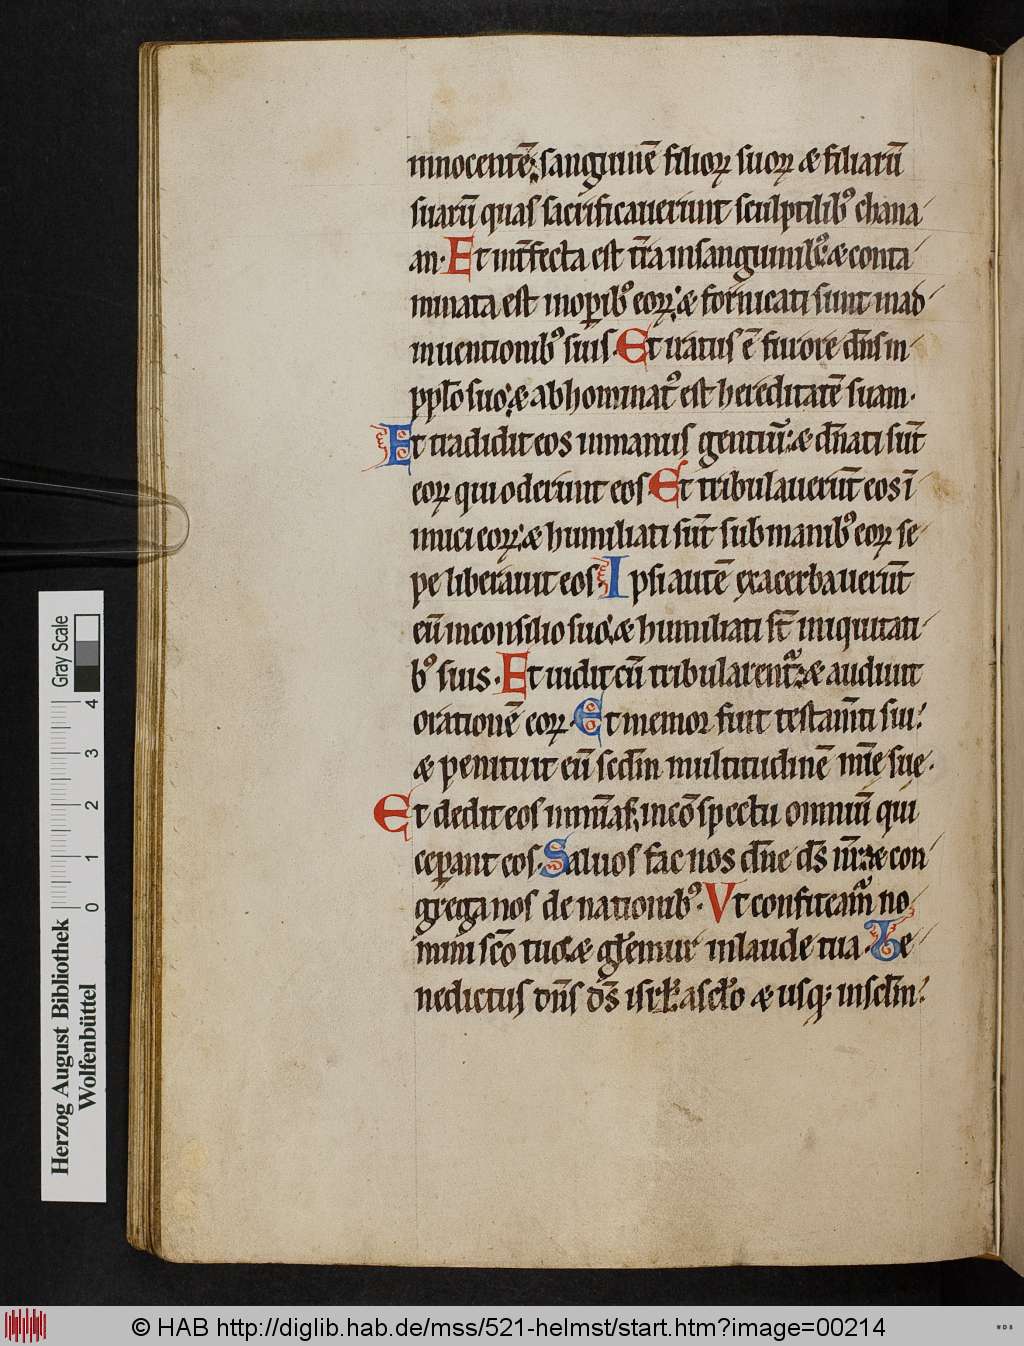 innocentē; sanguinē filioꝝ suoꝝ & filiarū
suarū quas sacrificauerunt sculptilib᷒ chana/
an. Et int̄fecta est t̄ra in sanguinib᷒; & conta/
minata est in oꝑib᷒ eoꝝ; & fornicati sunt in ad/
inuentionib᷒ suis. Et iratus ē furore dn̄s in
ppl̄o suo; & abhominat᷒ est hereditatē suam.
Et tradidit eos in manus gentiū; & dn̄ati sūt
eoꝝ qui oderunt eos. Et tribulauerūt eos ī
imici eoꝝ; & humiliati sūt sub manib᷒ eoꝝ se/
pe liberauit eos. Ipsi autē exacerbauerūt
eū in consilio suo; & humiliati st̄ iniquitati/
b᷒ suis. Et uidit cū tribularent᷑; & audiuit
orationē eoꝝ. Et memor fuit testam̄ti sui;
& penituit eū scdm̄ multitudinē mīe sue.
Et dedit eos in mīas; in cōspectu omniū qui
ceꝑant eos. Saluos fac nos dn̄e ds̄ nr̄; & con
grega nos de nationib᷒. Vt confiteam᷑ no/
mini sc̄o tuo; & gl̄emur in laude tua. Be/
nedictus dn̄s ds̄ isrl̄ a scl̄o & usq; in scl̄m;
Gray Scale
0 1 2 3 4
Herzog August Bibliothek
Wolfenbüttel
© HAB http://diglib.hab.de/mss/521-helmst/start.htm?image=00214
WDB